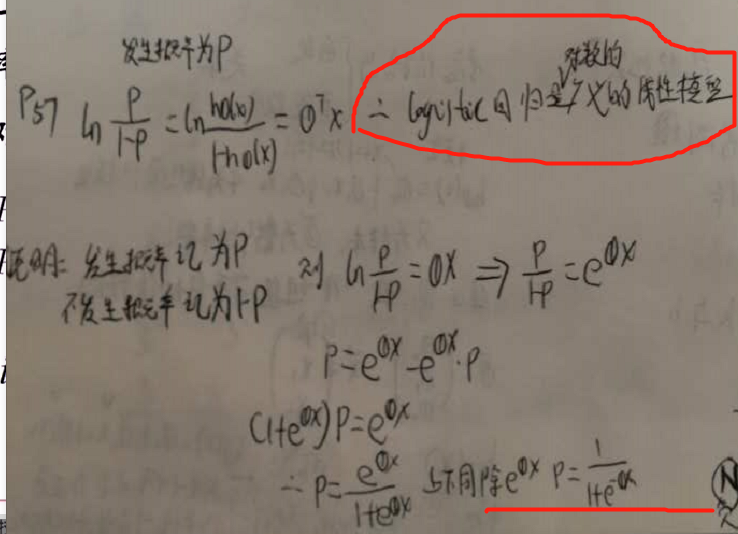 发生概率为P
P57 ln P/1-P = ln hθ(x)/1-hθ(x) = θᵀx ∴ Logistic回归是对数的线性模型
说明: 发生概率记为P 对 ln P/1-P = θX ⇒ P/1-P = e^θX
不发生概率记为1-P
P = e^θX - e^θX · P
(1+e^θX)P = e^θX
∴ P = e^θX/1+e^θX 上下同除e^θX P = 1/1+e^-θX
N